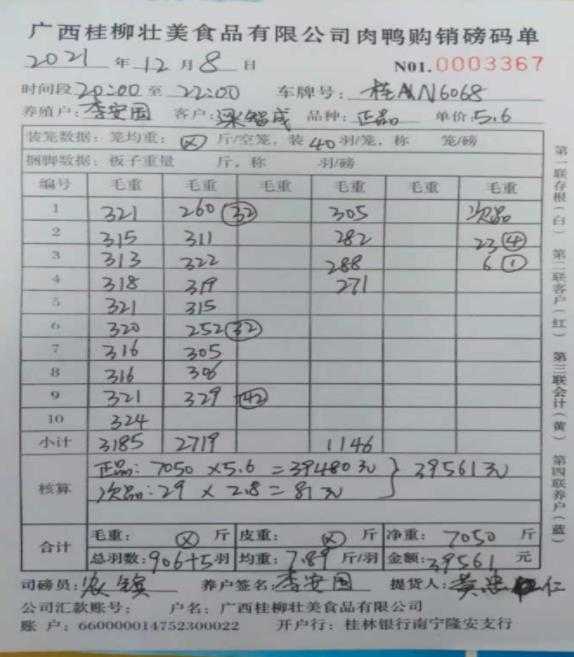 广西桂柳壮美食品有限公司肉鸭购销磅码单
2021 年 12 月 8 日 N01. 0003367
时间段 20:00 至 22:00 车牌号: 桂AN6068
养殖户: 李安国 客户: 梁智成 品种: 正品 单价: 5.6
装笼数据: 笼均重: ⊗ 斤/空笼, 装 40 羽/笼, 称 笼/磅
捆脚数据: 板子重量 斤, 称 羽/磅
编号 毛重 毛重 毛重 毛重 毛重 毛重
1 321 260 (32) 305 次品
2 315 311 282 23 (4)
3 313 322 288 6 (1)
4 318 319 271
5 321 315
6 320 252 (32)
7 316 305
8 316 306
9 321 329 (42)
10 324
小计 3185 2719 1146
核算 正品: 7050 × 5.6 = 39480元 } 39561元
次品: 29 × 2.8 = 81元
合计 毛重: ⊗ 斤 皮重: ⊗ 斤 净重: 7050 斤
总羽数: 906+5 羽 均重: 7.89 斤/羽 金额: 39561 元
司磅员: 养户签名: 李安国 提货人:
公司汇款账号: 户名: 广西桂柳壮美食品有限公司
账 户: 660000014752300022 开户行: 桂林银行南宁隆安支行
第一联存根(白) 第二联客户(红) 第三联会计(黄) 第四联养户(蓝)